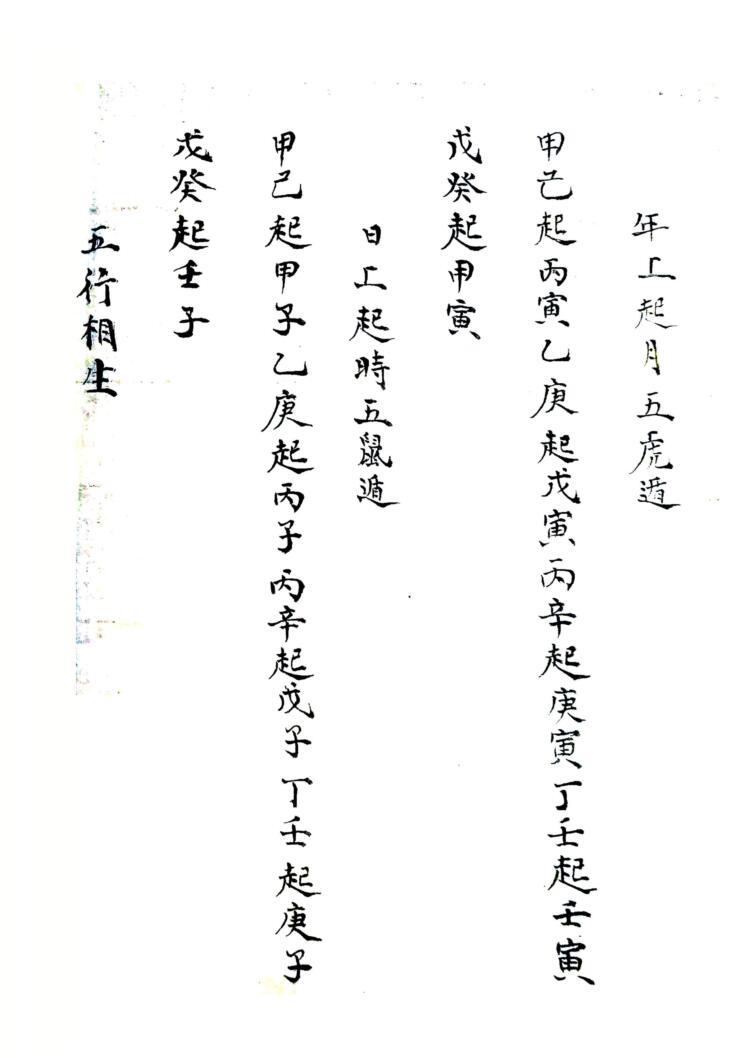 年上起月五虎遁
甲己起丙寅乙庚起戊寅丙辛起庚寅丁壬起壬寅
戊癸起甲寅
日上起時五鼠遁
甲己起甲子乙庚起丙子丙辛起戊子丁壬起庚子
戊癸起壬子
五行相生